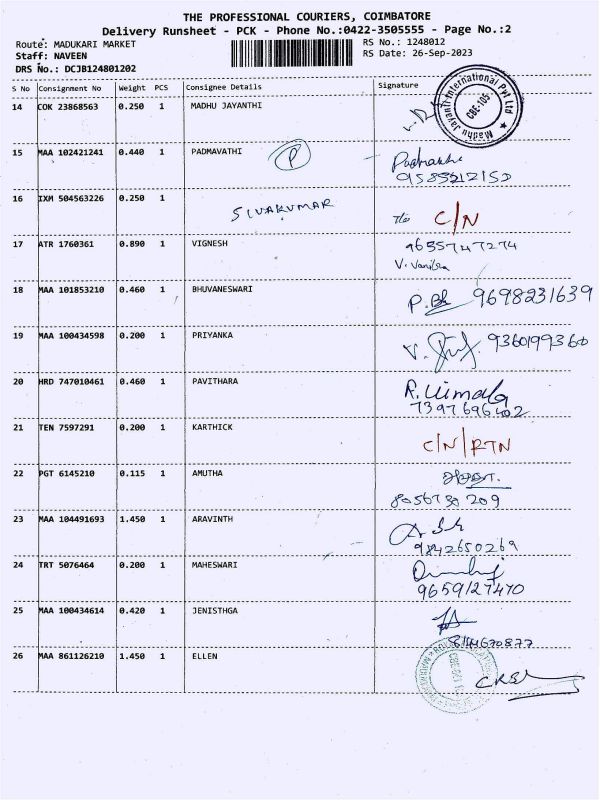 THE PROFESSIONAL COURIERS, COIMBATORE
Delivery Runsheet - PCK - Phone No.:0422-3505555 - Page No.:2
Route: MADUKARI MARKET
RS No.: 1248012
Staff: NAVEEN
RS Date: 26-Sep-2023
DRS No.: DCJB124801202
S No Consignment No Weight PCS Consignee Details Signature
14 COK 23868563 0.250 1 MADHU JAYANTHI
Madhu Jayanti International Pvt Ltd
CBE-105
15 MAA 102421241 0.440 1 PADMAVATHI P
9585212150
16 IXM 504563226 0.250 1
SIVAKUMAR C/N
17 ATR 1760361 0.890 1 VIGNESH 9655747274
18 MAA 101853210 0.460 1 BHUVANESWARI
9698231639
19 MAA 100434598 0.200 1 PRIYANKA
9360199360
20 HRD 747010461 0.460 1 PAVITHARA
R. Vimala
7397696402
21 TEN 7597291 0.200 1 KARTHICK
C/N/RTN
22 PGT 6145210 0.115 1 AMUTHA
8056730209
23 MAA 104491693 1.450 1 ARAVINTH
9842650269
24 TRT 5076464 0.200 1 MAHESWARI
9659127470
25 MAA 100434614 0.420 1 JENISTHGA
8144670877
26 MAA 861126210 1.450 1 ELLEN